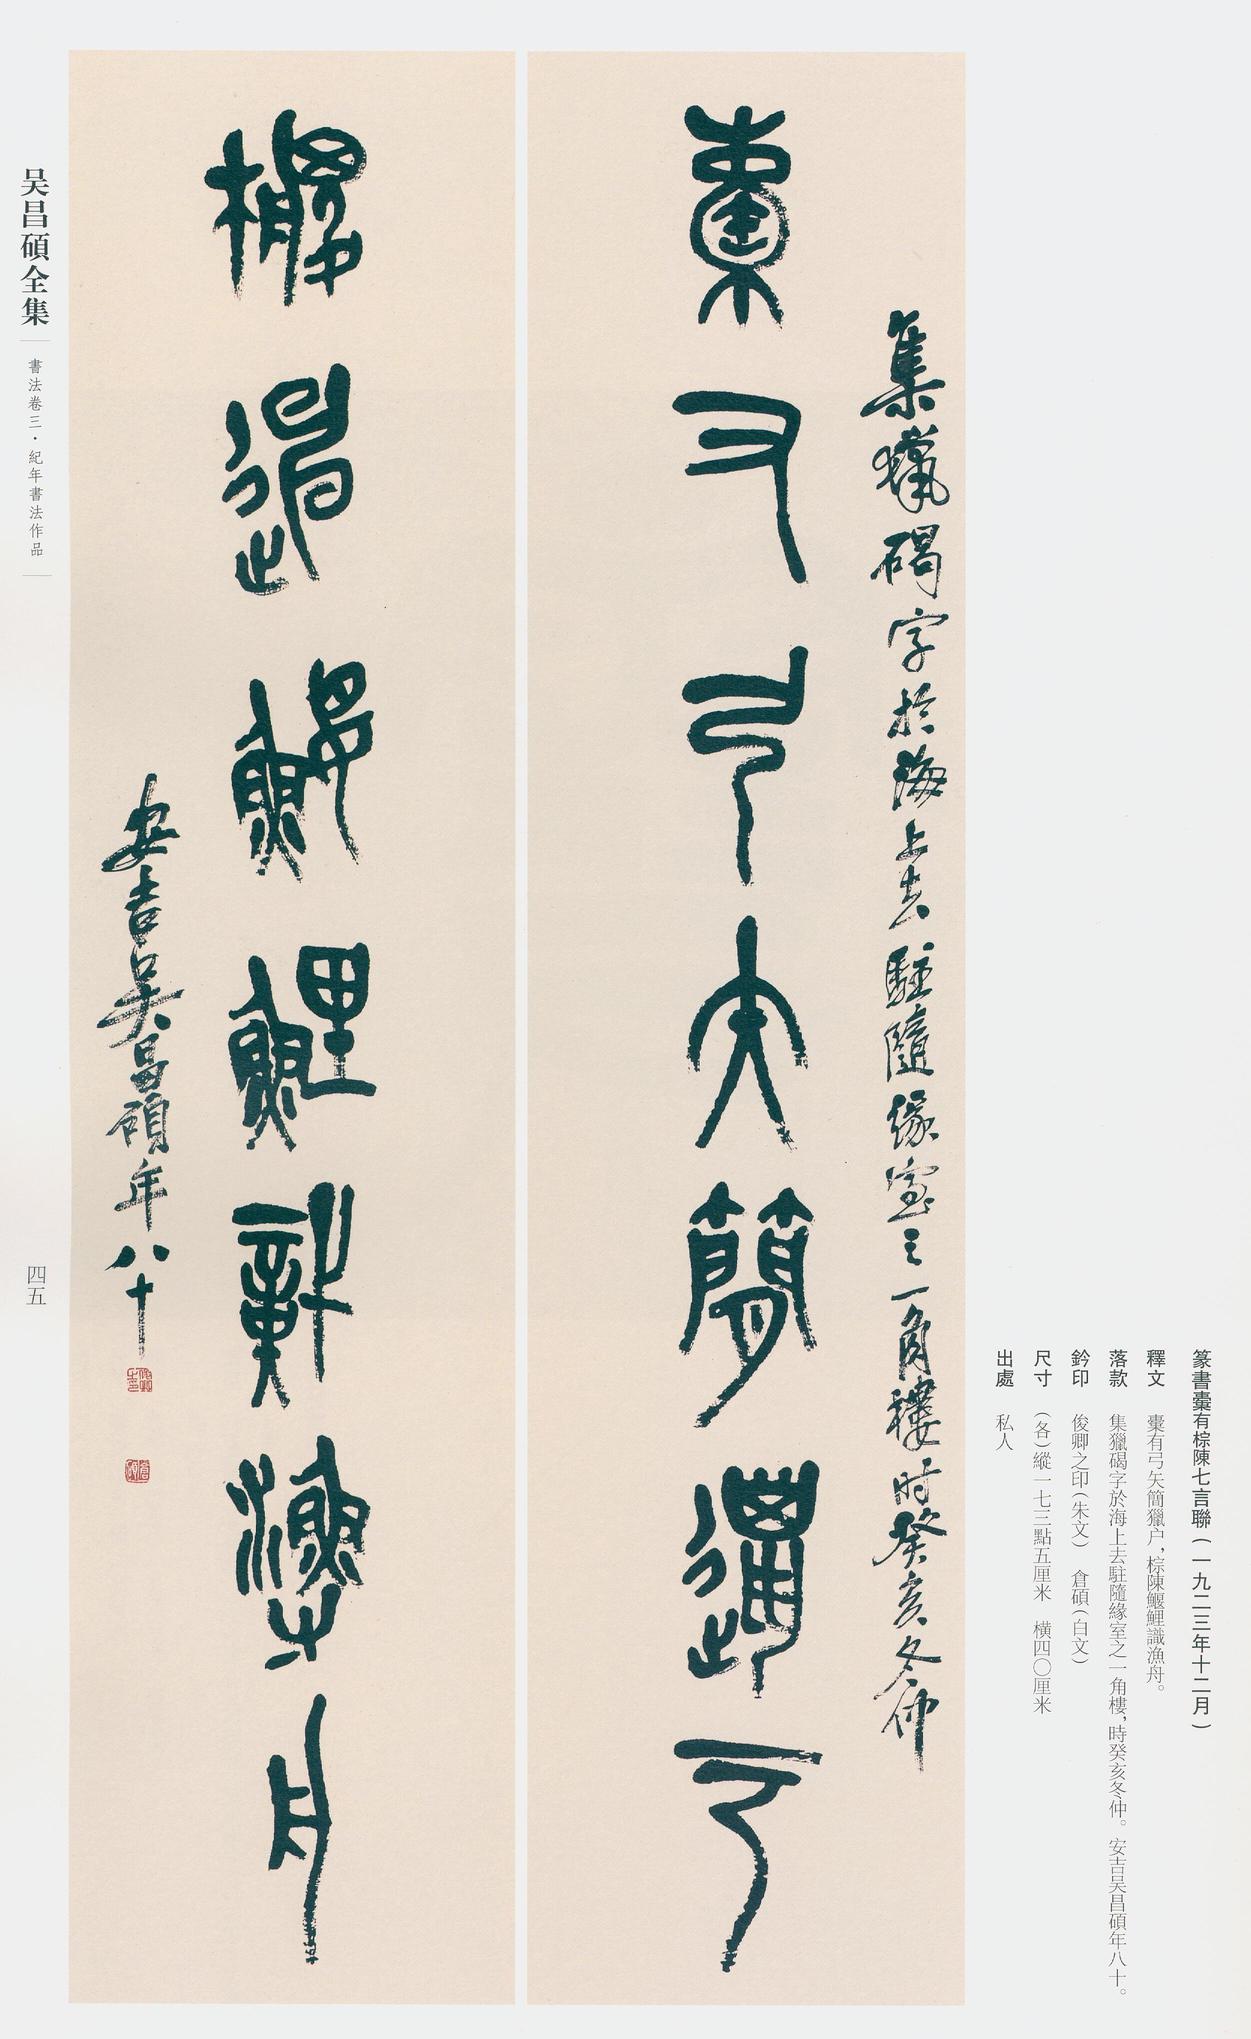 橐有弓矢簡獵户
集獵碣字於海上去駐隨緣室之一角樓時癸亥冬仲
棕陳鰋鯉識漁舟
安吉吴昌碩年八十
篆書橐有棕陳七言聯（一九二三年十二月）
釋文　橐有弓矢簡獵户，棕陳鰋鯉識漁舟。
落款　集獵碣字於海上去駐隨緣室之一角樓，時癸亥冬仲。安吉吴昌碩年八十。
鈐印　俊卿之印（朱文）　倉碩（白文）
尺寸　（各）縱一七三點五厘米　橫四〇厘米
出處　私人
吴昌碩全集
書法卷三·紀年書法作品
四五